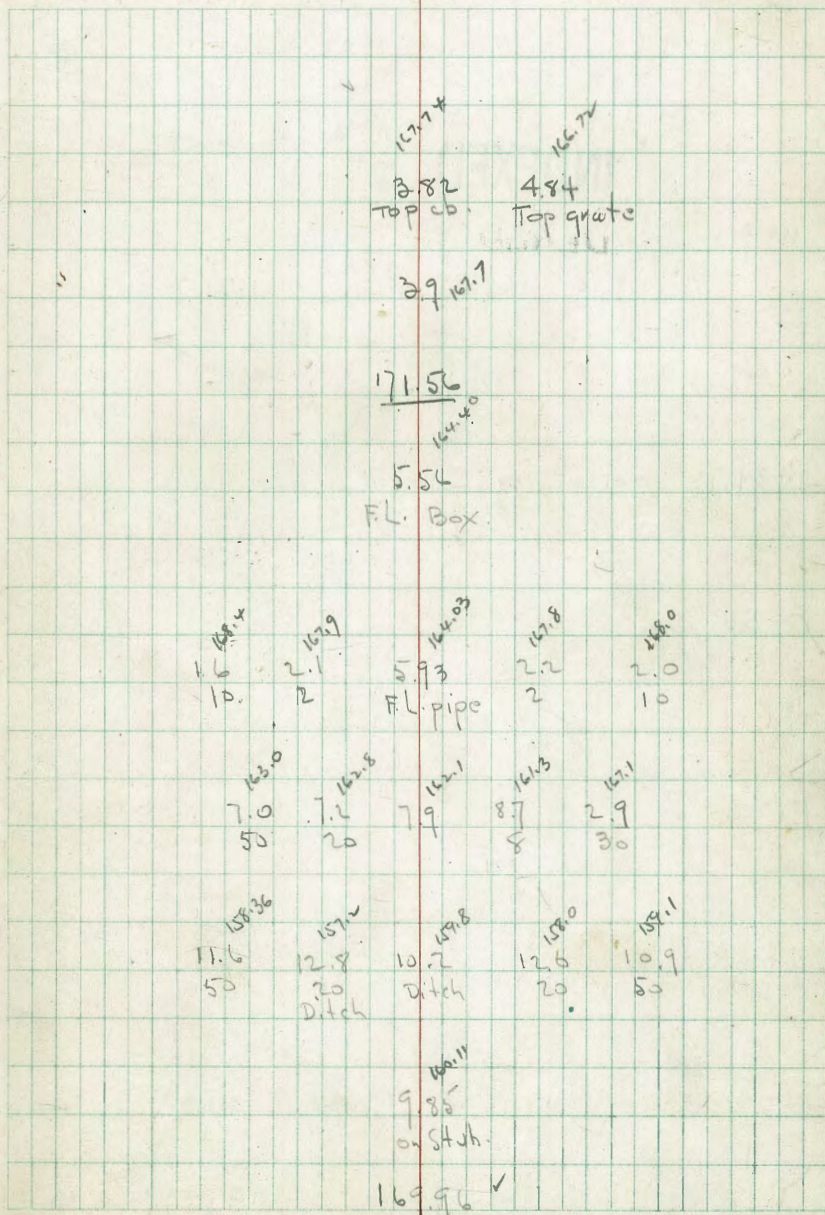 167.74 166.72
3.82 4.84
Top cb. Top grate
3.9 167.7
171.56
164.40
5.56
F.L. Box.
168.4 167.9 164.03 167.8 168.0
1.6 2.1 5.93 2.2 2.0
10. 2 F.L. pipe 2 10
163.0 162.8 162.1 161.3 167.1
7.0 7.2 7.9 8.7 2.9
50 20 8 30
158.36 157.2 159.8 158.0 159.1
11.6 12.8 10.2 12.0 10.9
50 20 Ditch 20 50
Ditch
160.11
9.85
on Stub.
169.96 ✓